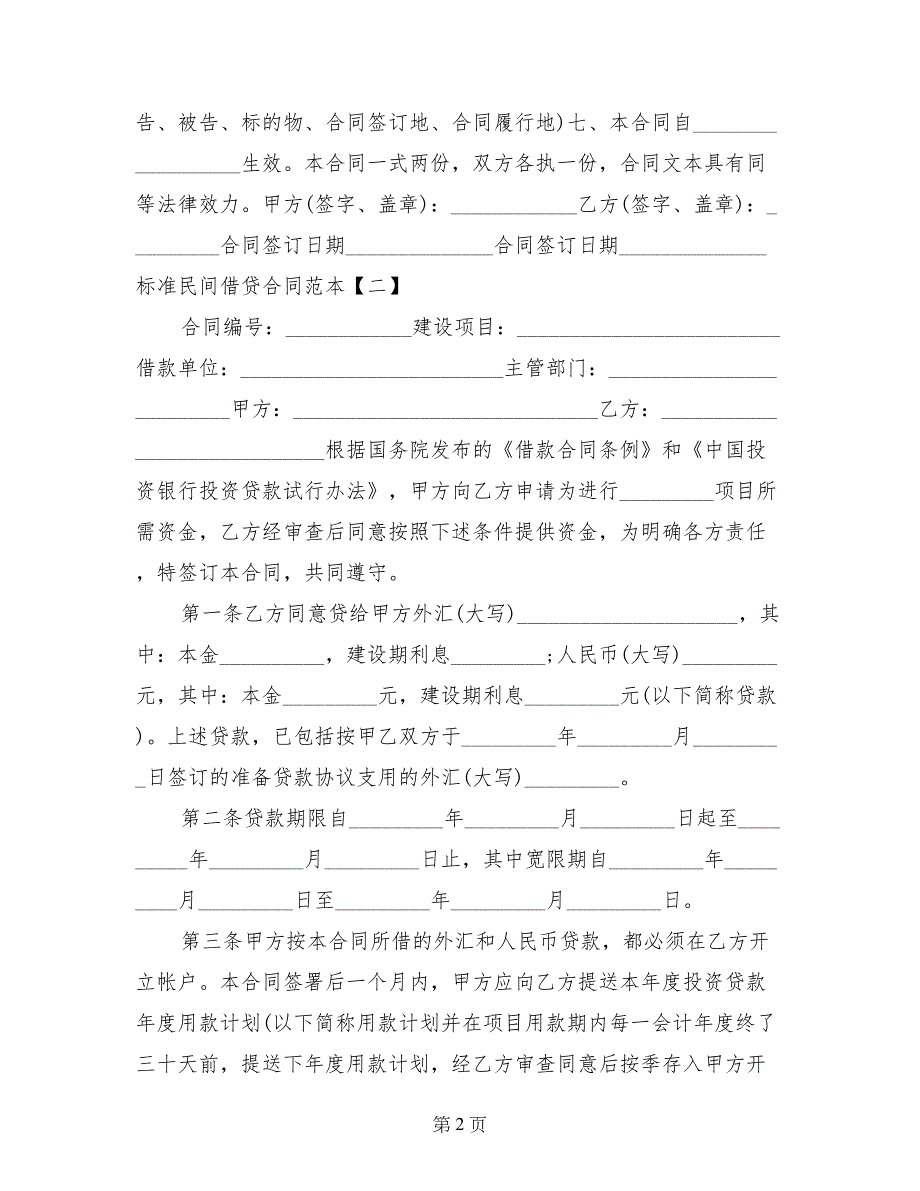 告、被告、标的物、合同签订地、合同履行地)七、本合同自________
__________生效。本合同一式两份，双方各执一份，合同文本具有同
等法律效力。甲方(签字、盖章)：____________乙方(签字、盖章)：_
________合同签订日期______________合同签订日期______________
标准民间借贷合同范本【二】
合同编号：____________建设项目：_________________________
借款单位：_________________________主管部门：________________
_________甲方：_____________________________乙方：___________
__________________根据国务院发布的《借款合同条例》和《中国投
资银行投资贷款试行办法》，甲方向乙方申请为进行_________项目所
需资金，乙方经审查后同意按照下述条件提供资金，为明确各方责任
，特签订本合同，共同遵守。
第一条乙方同意贷给甲方外汇(大写)_____________________，其
中：本金__________，建设期利息_________;人民币(大写)_________
元，其中：本金_________元，建设期利息_________元(以下简称贷款
)。上述贷款，已包括按甲乙双方于_________年_________月________
_日签订的准备贷款协议支用的外汇(大写)_________。
第二条贷款期限自_________年_________月_________日起至____
_____年_________月_________日止，其中宽限期自_________年_____
____月_________日至_________年_________月_________日。
第三条甲方按本合同所借的外汇和人民币贷款，都必须在乙方开
立帐户。本合同签署后一个月内，甲方应向乙方提送本年度投资贷款
年度用款计划(以下简称用款计划并在项目用款期内每一会计年度终了
三十天前，提送下年度用款计划，经乙方审查同意后按季存入甲方开
第 2 页